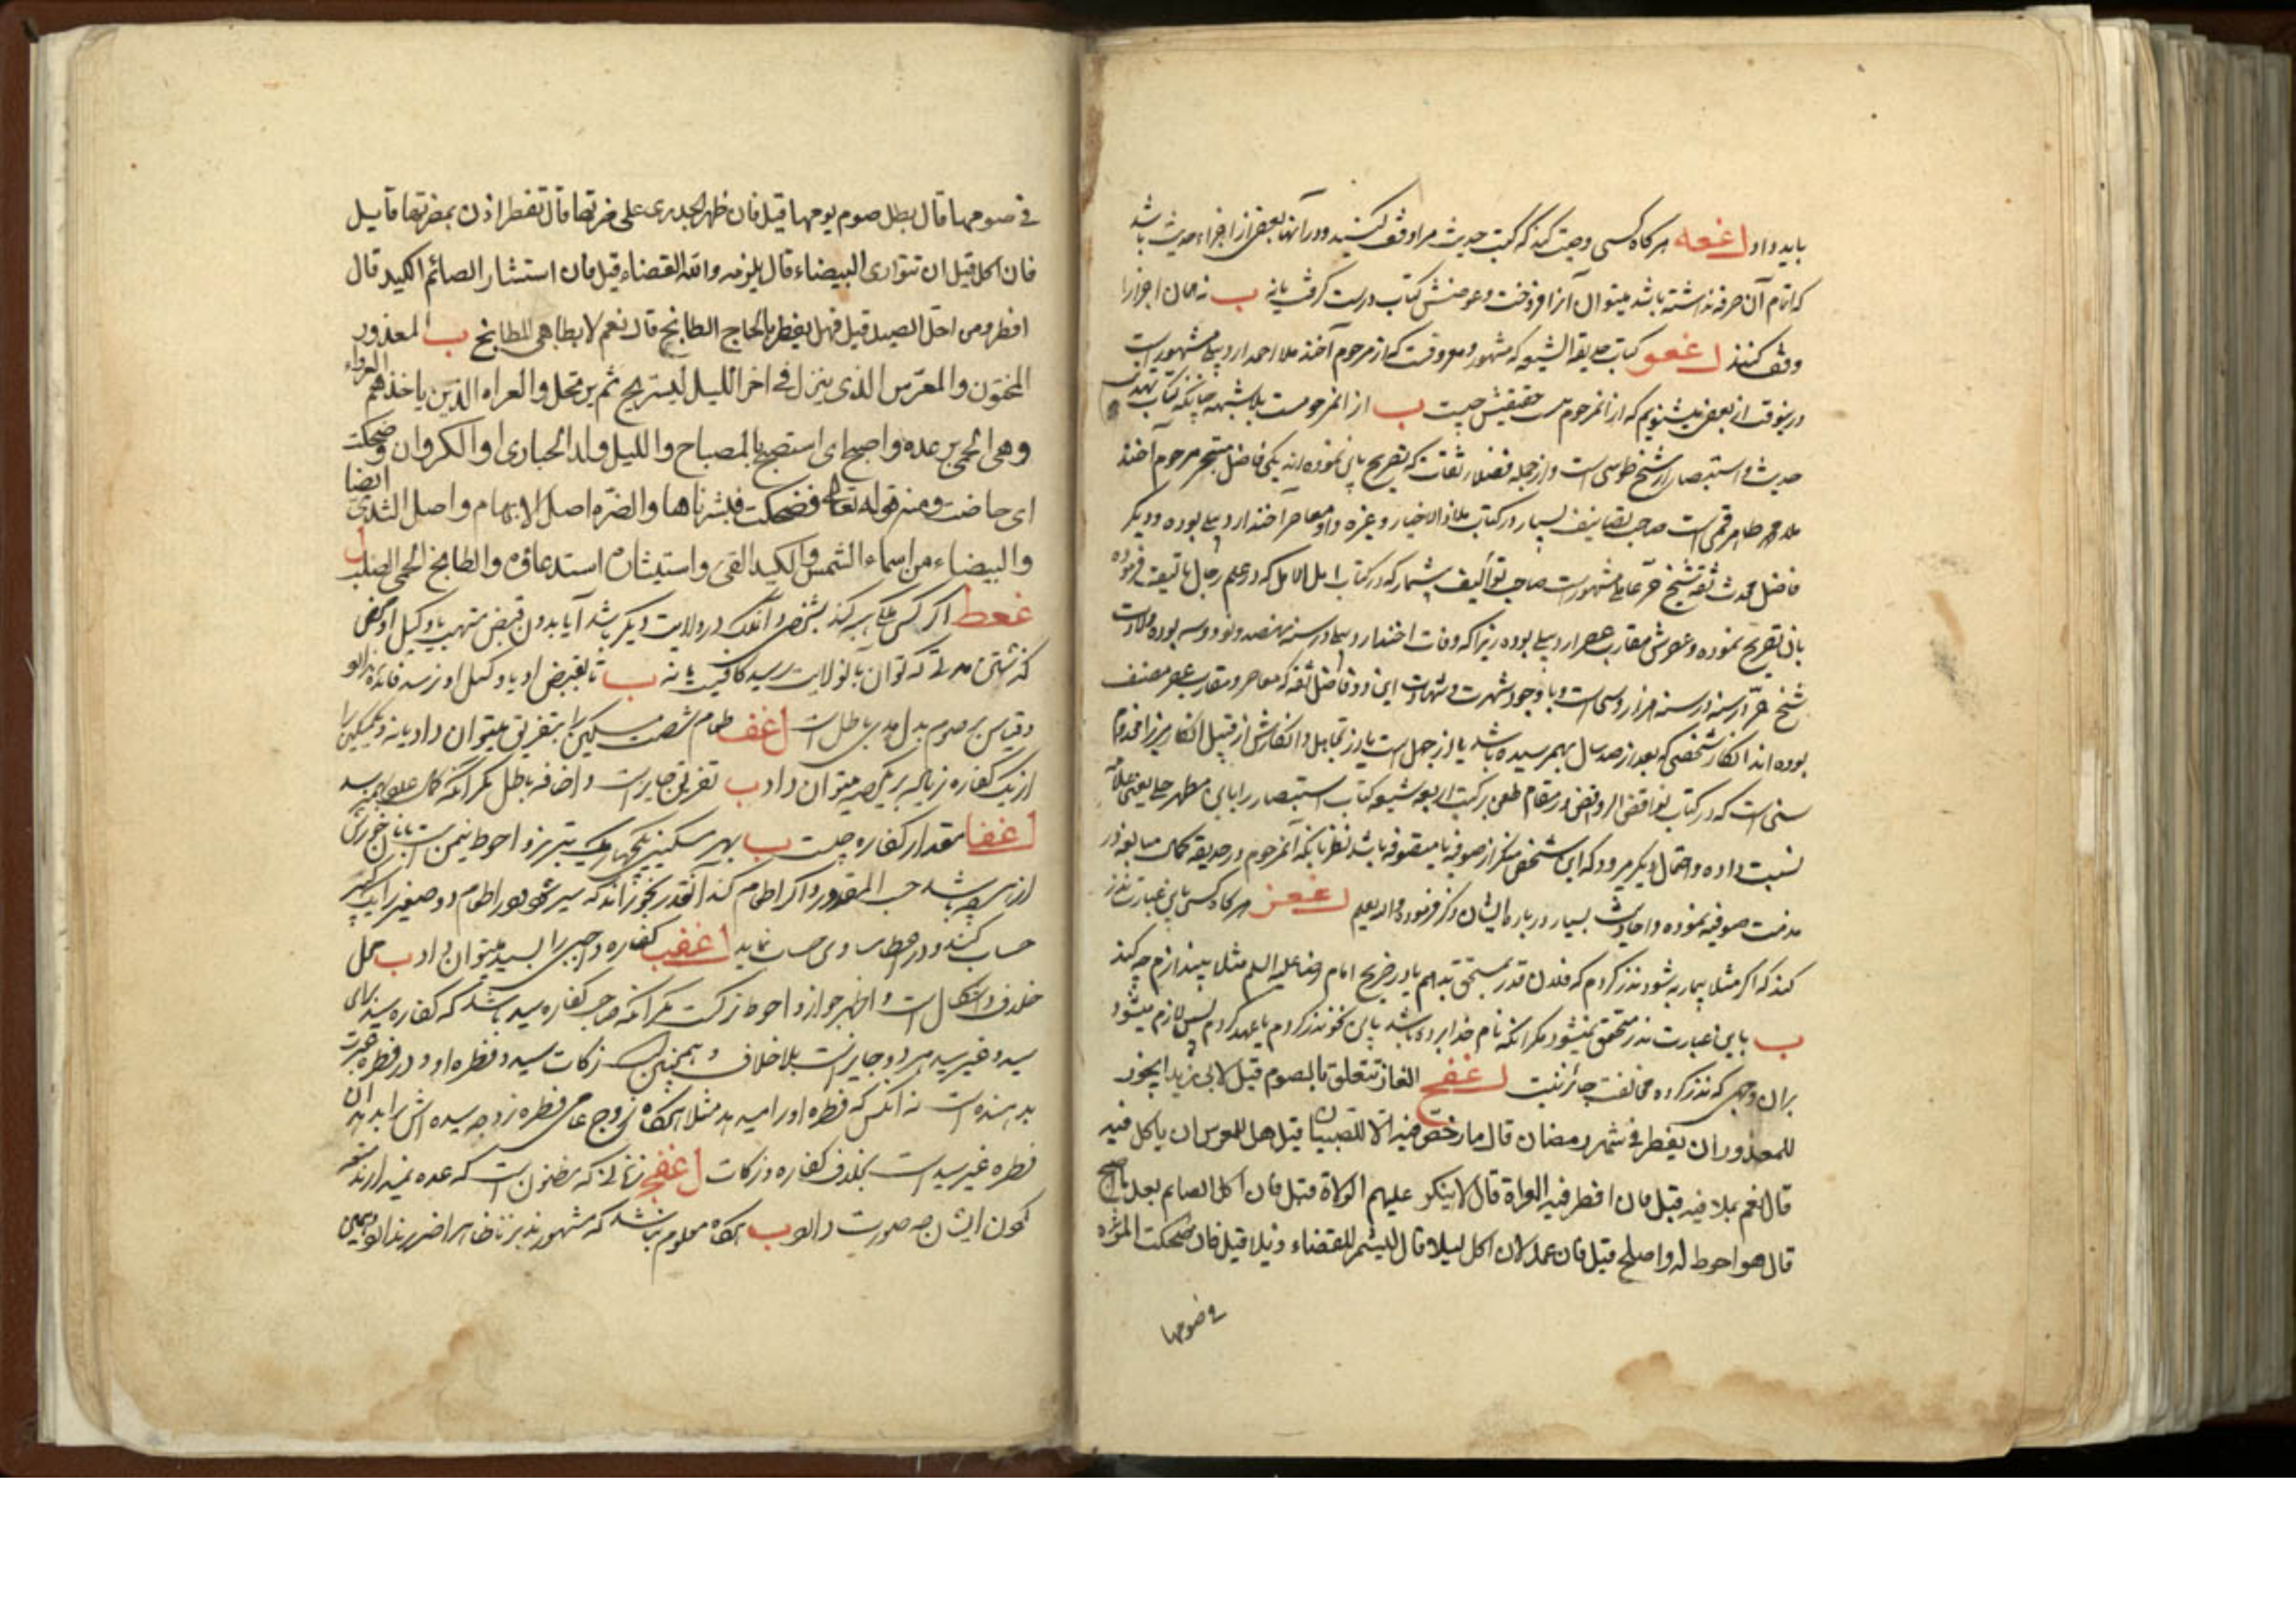 باید داد اغعه هرکاه کسی وصیت کند که کتب حدیث مرا وقف کنید و در آنها بعضی از اجزاء حدیث باشد
که اتمام آن صرفه نداشته باشد میتوان آنرا فروخت و عوضش کتاب درست کرفت یا نه ب نه همان اجزا را
وقف کنند اغعو کتاب حدیقة الشیعه که مشهور و معروفست که از مرحوم آخند ملا احمد اردبیلی مشهور است
درینوقت از بعضی میشنویم که از انمرحوم نیست حقیقتش چیست ب از انمرحومست بلا شبهه چنانکه کتاب تهذیب
حدیث و استبصار از شیخ طوسی است و از جمله فضلا و ثقات که تصریح باین نموده اند یکی فاضل متبحر مرحوم آخند
ملا محمد طاهر قمی است صاحب تصانیف بسیار در کتاب ملاذ الاخیار و غیره و او معاصر آخند اردبیلی بوده و دیکر
فاضل محدث ثقه شیخ حر عاملی مشهور است صاحب توألیف بیشمار که در کتاب امل الآمل که در علم رجال تألیف فرموده
بان تصریح نموده و عصرش مقارب عصر اردبیلی بوده زیرا که وفات اخند اردبیلی در سنه نهصد و نود و سه بوده و ولادت
شیخ حر در سنه هزار و سی است و با وجود شهرت و شهادت این دو فاضل ثقه که معاصر و مقارب عصر مصنف
بوده اند انکار شخصی که بعد از صد سال بهمرسیده باشد یا از جهل است یا از تجاهل و انکارش از قبیل انکار میرزا مخدوم
سنی است که در کتاب نواقض الروافض در مقام طعن بر کتب اربعه شیعه کتاب استبصار را باین مطهر حلی یعنی علامه
نسبت داده و احتمال دیکر میرود که این شخص منکر از صوفیه یا متصوفه باشد نظر بانکه آنمرحوم در حدیقه کمال مبالغه در
مذمت صوفیه نموده و احادیث بسیار در باره ایشان ذکر فرموده والله یعلم اغعز هرکاه کسی باین عبارت نذر
کند که اکر مثلا بیمار به شود نذر کردم که فلان قدر بمستحق بدهم یا در ضریح امام رضا علیه السلم مثلا بیندازم چه کند
ب باین عبارت نذر متحقق نمیشود مکر انکه نام خدا برده باشد باین نحو نذر کردم یا عهد کردم پس لازم میشود
بران وجهی که نذر کرده مخالفت جائز نیست اغعح الغاز تتعلق بالصوم قیل لابی زید ایجوز
للمعذور ان یفطر فی شهر رمضان قال ما رخص فیه الا للصبیان قیل هل للعرس ان یاکل فیه
قال نعم بملا فیه قیل فان افطر فیه العراة قال لا ینکر علیهم الولاة قیل فان اکل الصایم بعد ما اصبح
قال هو احوط له واصلح قیل فان عمد لان اکل لیلا قال لیشمر للقضاء ذیلا قیل فان ضحکت المرءه
فی صومها
فی صومها قال بطل صوم یومها قیل فان ظهر الجدری علی ضرتها قال تفطر اذن بمضرتها قیل
فان اکل قبل ان تتواری البیضاء قال یلزمه والله القضاء قیل فان استثار الصائم الکید قال
افطر ومن احل الصید قیل فهل یفطر بالحاح الطابخ قال نعم لا بطاهی المطابخ ب المعذور
المختون والمعرس الذی ینزل فی اخر اللیل لیستریح ثم یرتحل والعراة الذین یاخذهم العرواء
وهی الحمی برعده واصبح ای استصبح بالمصباح واللیل ولد الحباری او الکروان وضحکت
ای حاضت ومنه قوله تعالی فضحکت فبشرناها والضره اصل الابهام واصل الثدی ایضا
والبیضاء من اسماء الشمس والکید القیء واستیثاره استدعاؤه والطابخ الحمی الصلب
اغعط اکر کسی ملکی هبه کند بشخصی و آنملک در ولایت دیکر باشد آیا بدون قبض متهب یا وکیل او محض
کذشتن مدتی که توان بآنولایت رسید کافیست یا نه ب تا بقبض او یا وکیل او نرسد فائده ندارد
وقیاس بر صوم بدل هدی باطل است اغف طعام شصت مسکین را بتفریق میتوان داد یا نه و یکمسکین را
از یک کفاره زیاده بر یک حصه میتوان داد ب تفریق جایز است و اضافه باطل مکر آنکه کمال عدد بهم نرسد
اغفا مقدار کفاره چیست ب بهر مسکینی یکچهاریک تبریز و احوط نیمن است از نان خورش
از هرچه باشد حسب المقدور و اکر اطعام کند آنقدر بخوراند که سیر شود و در اطعام دو صغیر را یک کبیر
حساب کند و در اعطا مساوی حساب نماید اغفب کفاره واجبی را بسید میتوان داد ب محل
خلاف و اشکال است و اظهر جواز و احوط ترکست مکر آنکه صاحب کفاره سید باشد که کفاره سید برای
سید و غیر سید هر دو جایز است بلا خلاف و همچنین است زکات سید و فطره او و در فطره عبرت
بدهنده است نه انکس که فطره او را میدهد مثلا هرکاه زوج عامی فطره زوجه سیده اش را بدهد آن
فطره غیر سید است بخلاف کفاره و زکات اغفج زنانی که مضنون است که عده نمیدارند متعه
کردن ایشان چه صورت دارد ب هرکاه معلوم نباشد که مشهور بزنا باشد ظاهرا ضرر ندارد و همچنین